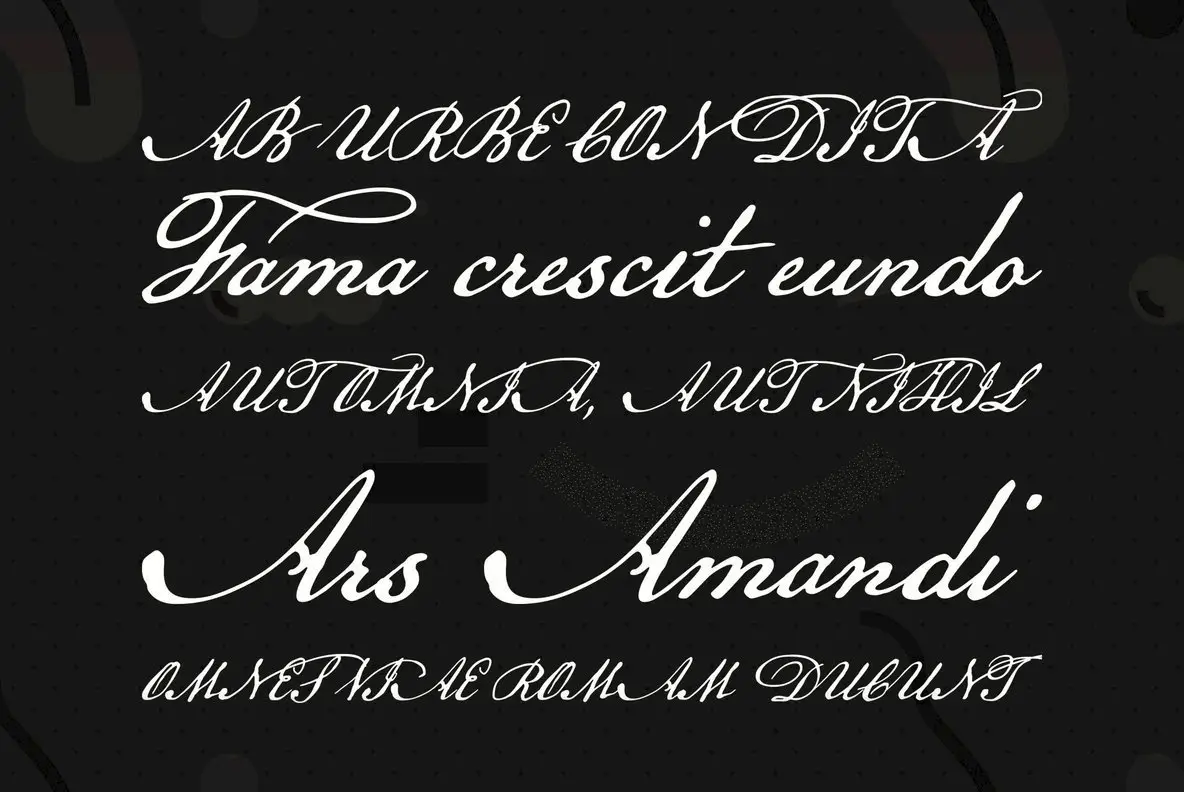 AB URBE CONDITA
Fama crescit eundo
AUT OMNIA, AUT NIHIL
Ars Amandi
OMNES VIAE ROMAM DUCUNT